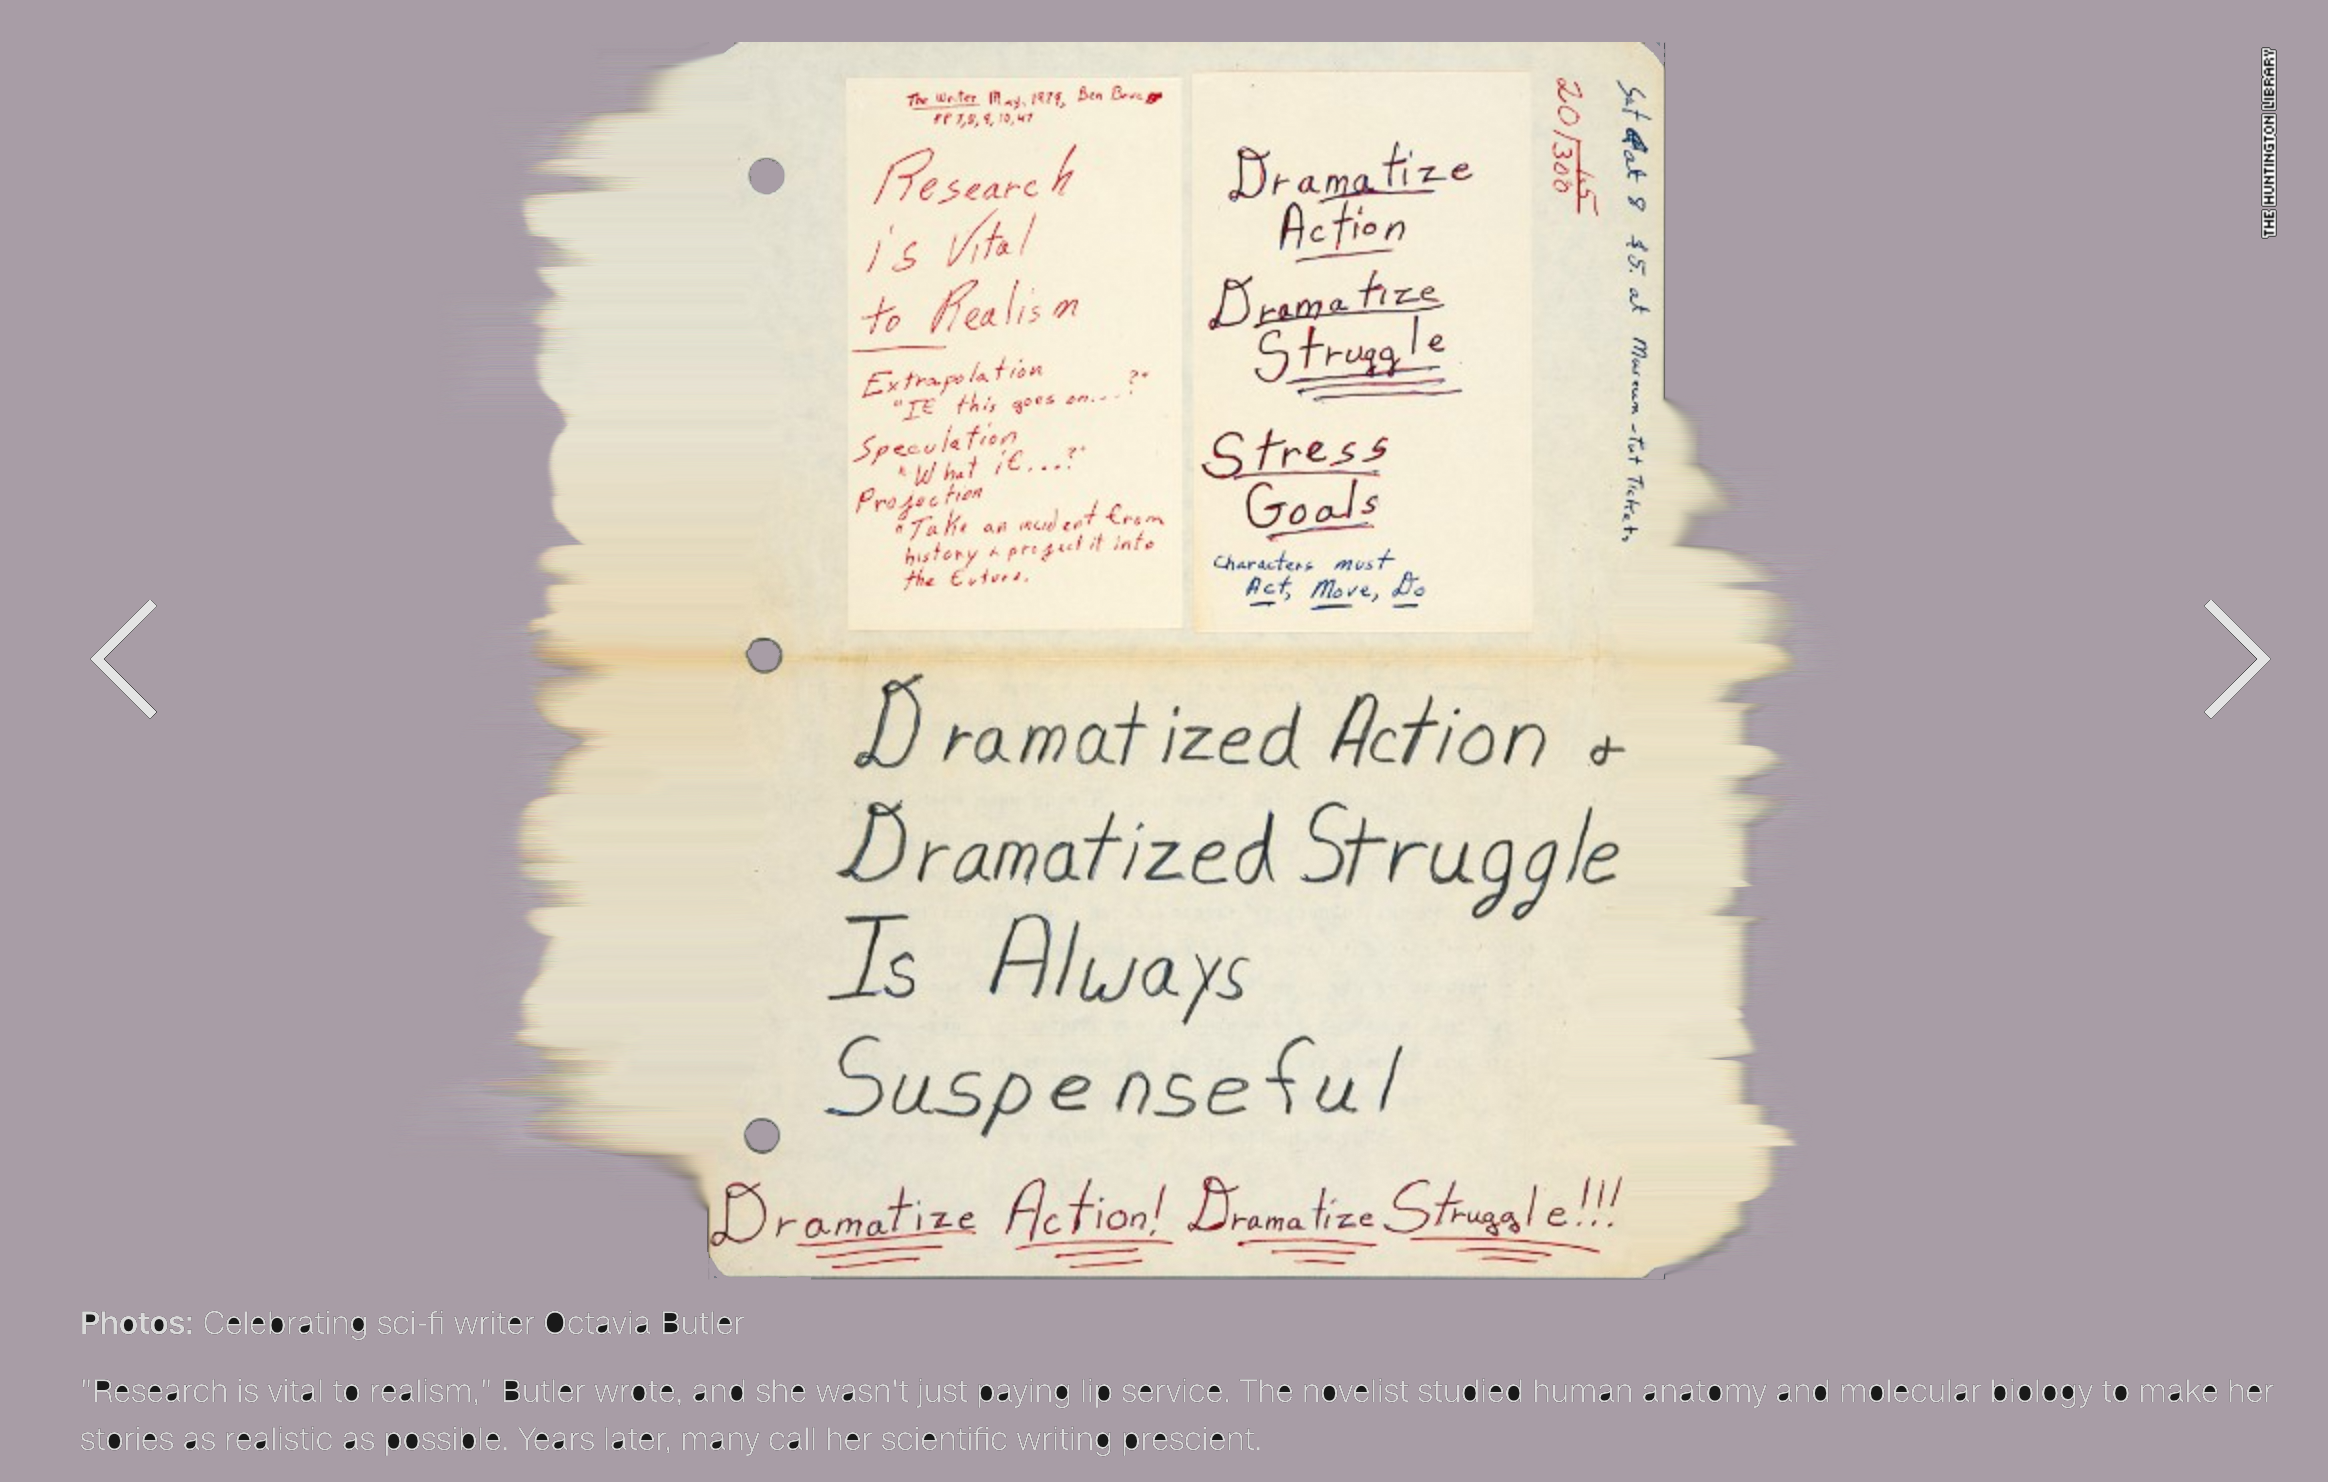 The Writer May, 1979, Ben Bova
PP 7,8,9,10,47
Research
is Vital
to Realism
Extrapolation
"If this goes on....?"
Speculation
"What if....?"
Projection
"Take an incident from
history & project it into
the future.
Dramatize
Action
Dramatize
Struggle
Stress
Goals
Characters must
Act, Move, Do
20/300
15
Sat at 8 $5. at Museum - Tut Tickets
Dramatized Action &
Dramatized Struggle
Is Always
Suspenseful
Dramatize Action! Dramatize Struggle!!!
THE HUNTINGTON LIBRARY
Photos: Celebrating sci-fi writer Octavia Butler
"Research is vital to realism," Butler wrote, and she wasn't just paying lip service. The novelist studied human anatomy and molecular biology to make her
stories as realistic as possible. Years later, many call her scientific writing prescient.